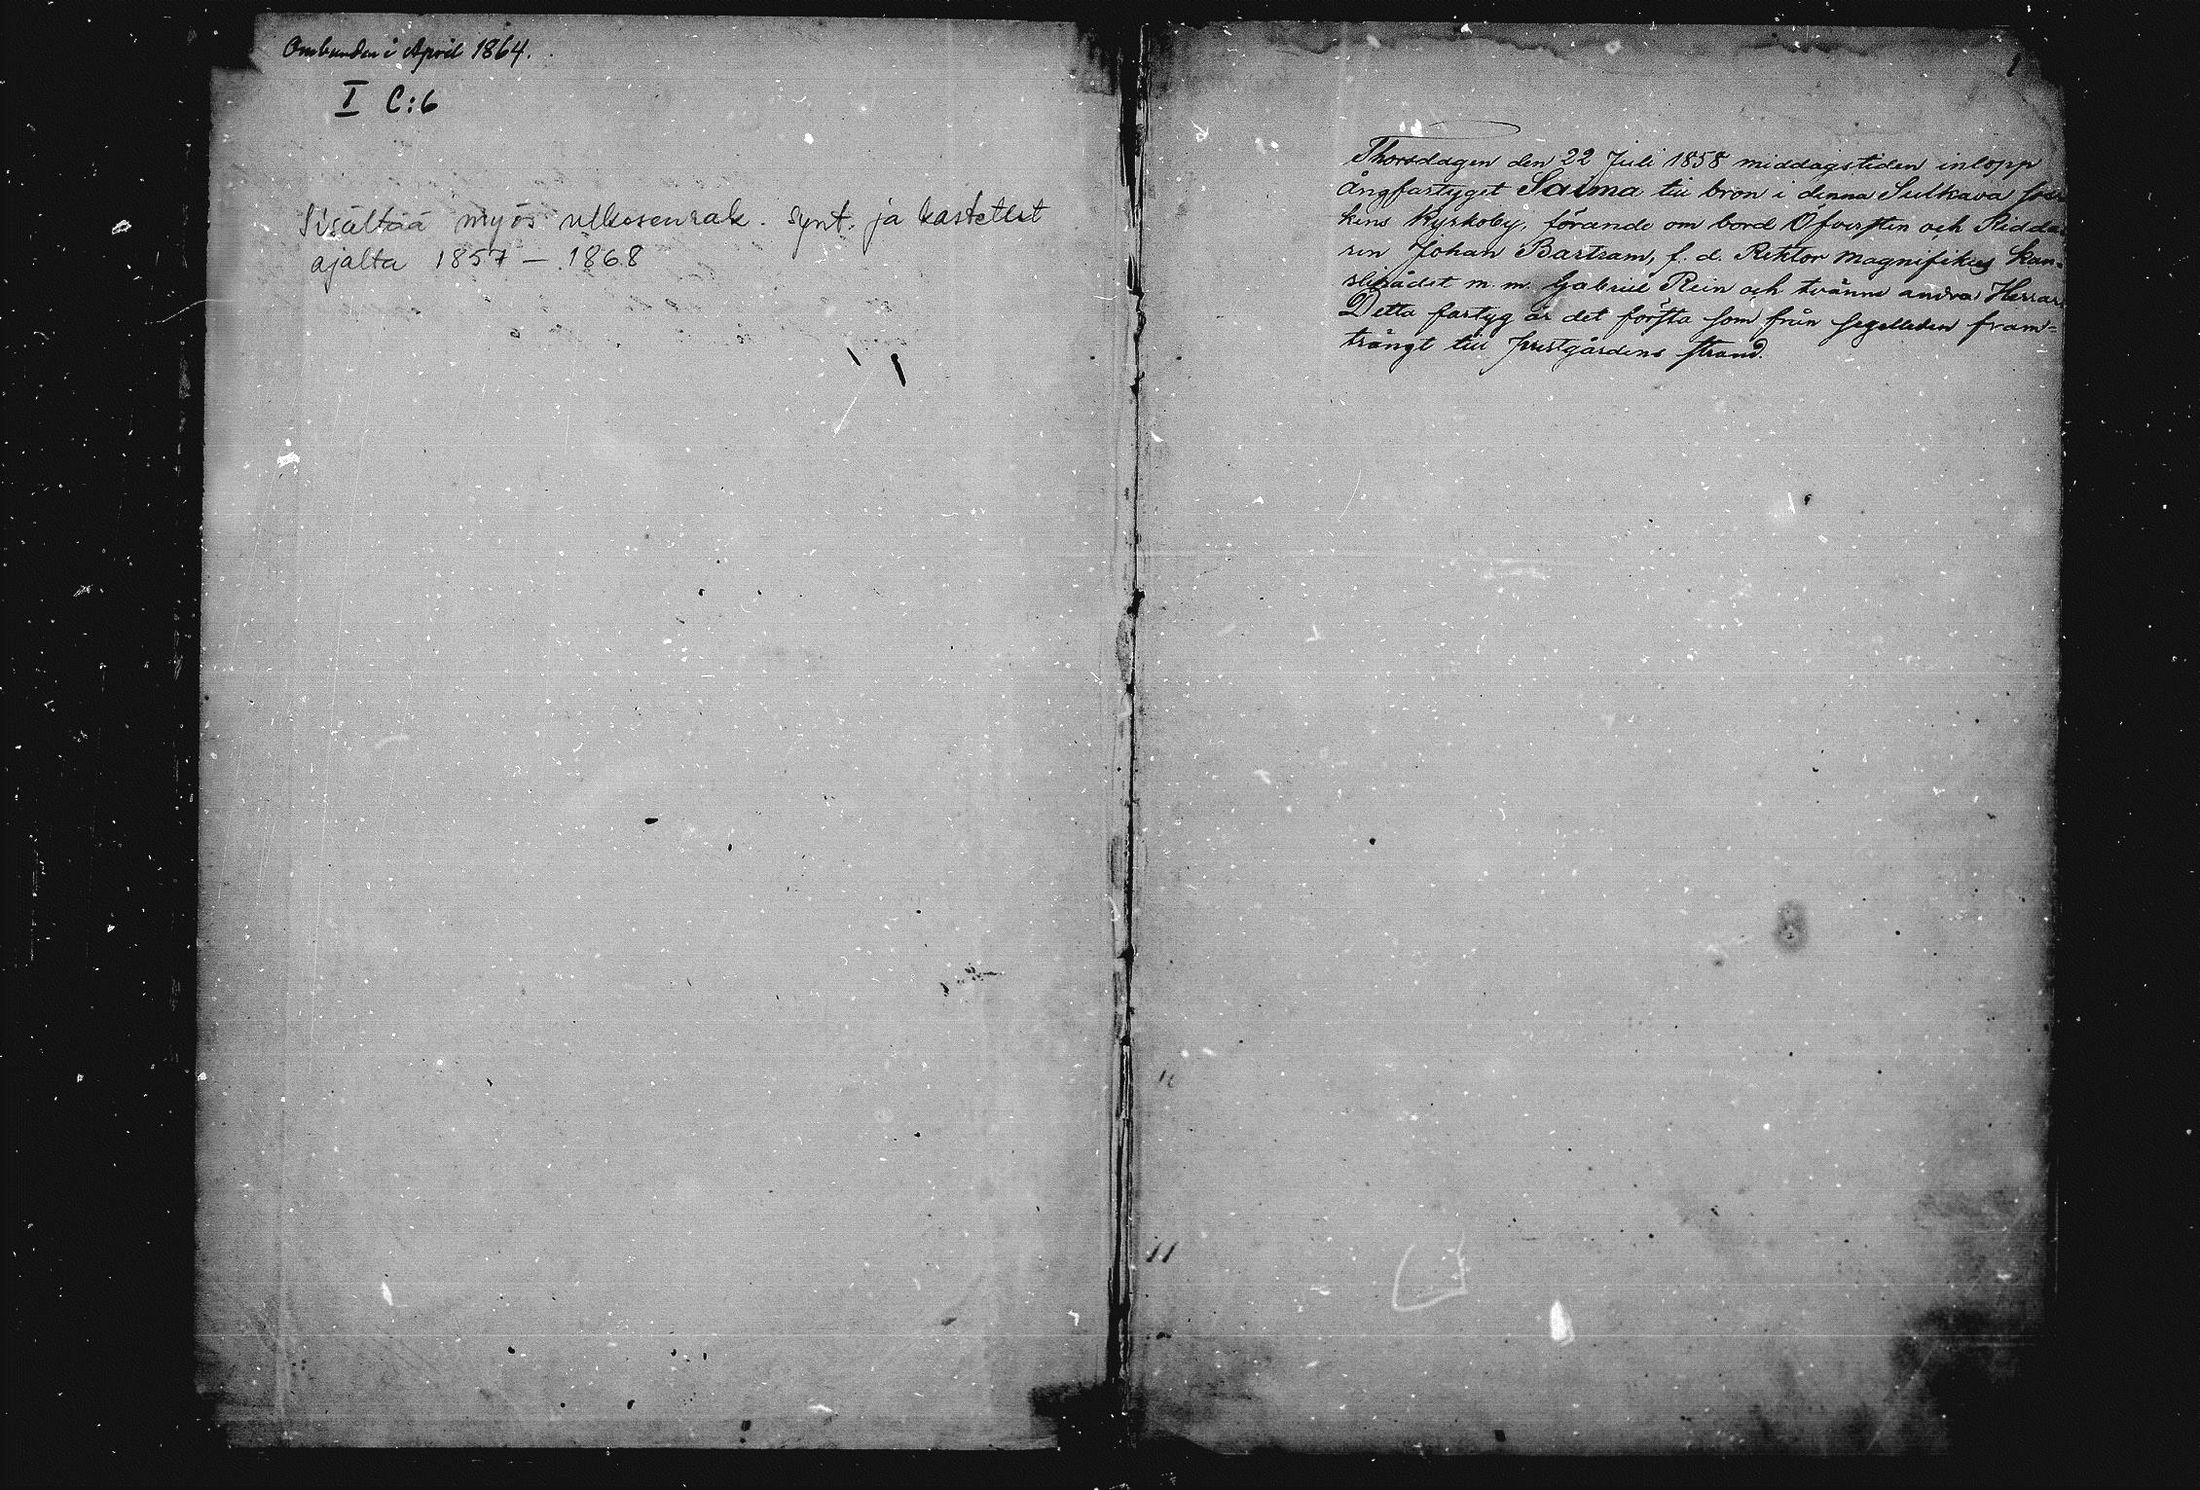 Ombunden i April 1864.
I C:6
Sisältää myös ulkosenrak. synt. ja kastetut
ajalta 1857 – 1868
1
Thorsdagen den 22 Juli 1858 middagstiden inlopp
ångfartyget Saima till bron i denna Sulkava Soc-
kens Kyrkoby, förande om bord Ofversten och Ridda-
ren Johan Bartram, f. d. Rektor magnifikus Kan-
slirådet m. m. Gabriel Rein och tvänne andra Herrar.
Detta fartyg är det första som från segelleden fram-
trängt till prestgårdens strand.